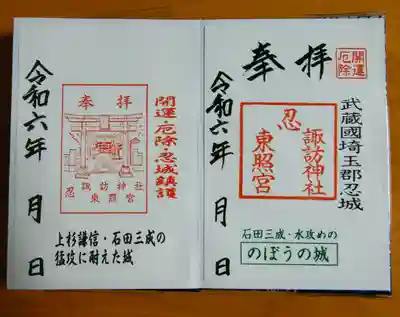 開運
厄除
奉拝
武蔵國埼玉郡忍城
諏訪神社
忍
東照宮
令和六年 月 日
石田三成・水攻めの
のぼうの城
開運・厄除・忍城鎮護
奉拝
忍 諏訪神社
東照宮
令和六年 月 日
上杉謙信・石田三成の
猛攻に耐えた城